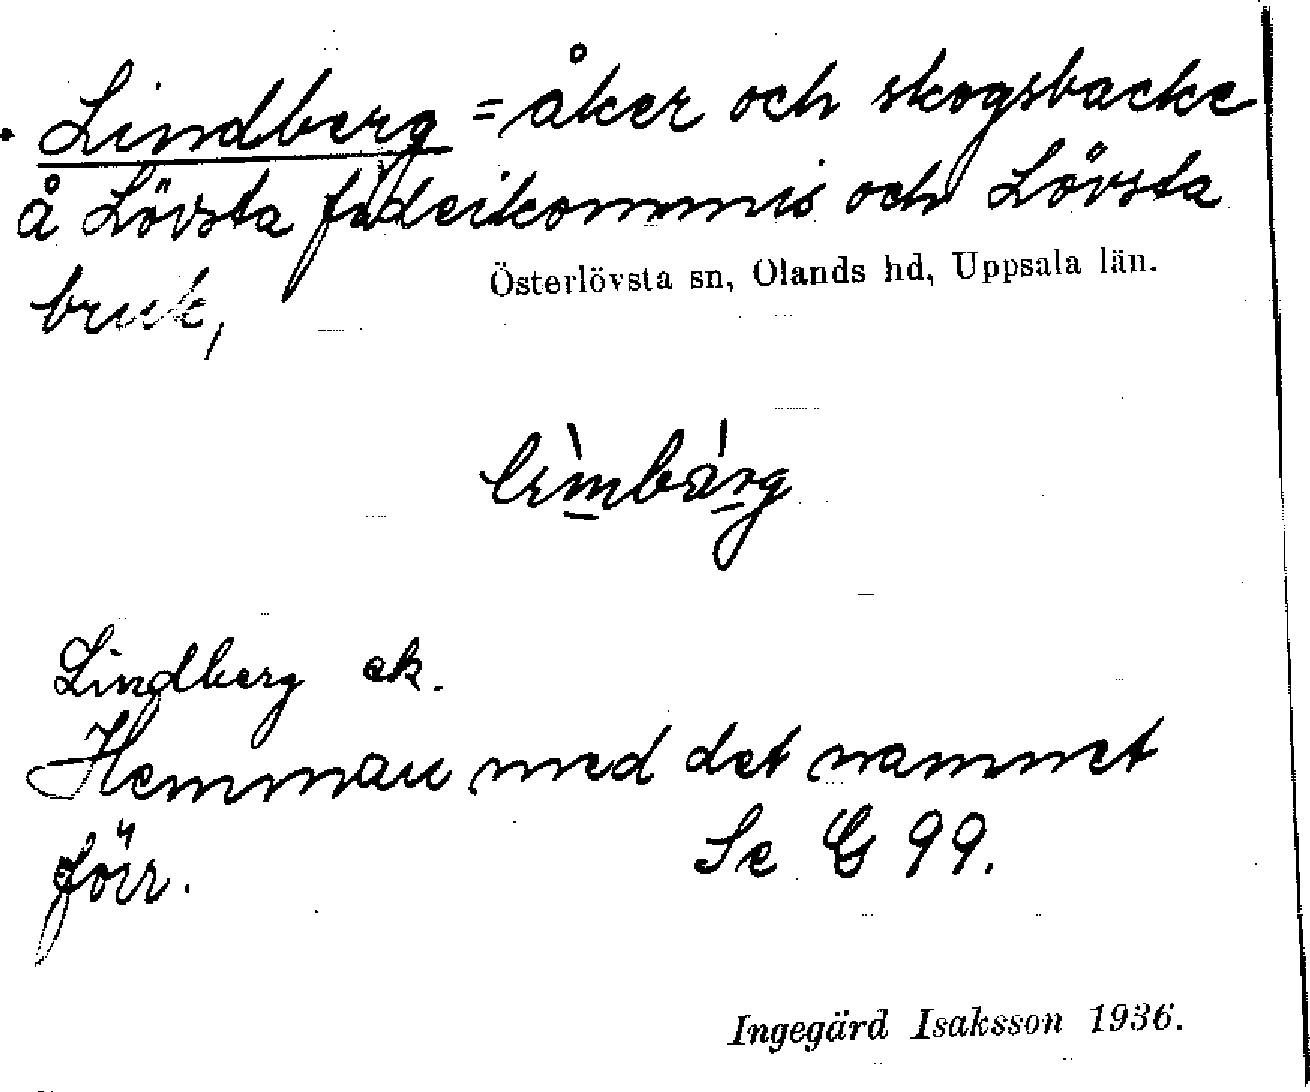 Lindberg = åker och skogsbacke
å Lövsta fideikommis och Lövsta
bruk,
Österlövsta sn, Olands hd, Uppsala län.
Lindberg ek.
Hemman med det namnet
förr. Se G 99.
Ingegärd Isaksson 1936.